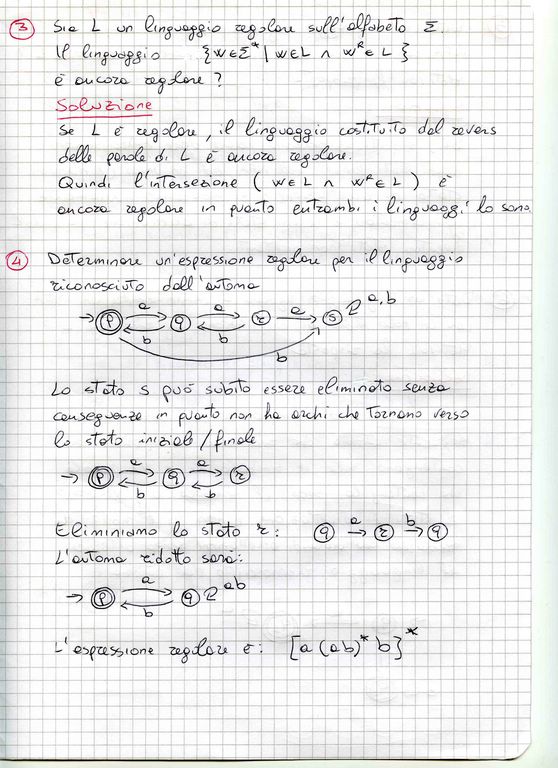 ③ Sia L un linguaggio regolare sull'alfabeto Σ.
Il linguaggio {w∈Σ* | w∈L ∧ wᴿ∈L}
è ancora regolare?
Soluzione
Se L è regolare, il linguaggio costituito dal revers
delle parole di L è ancora regolare.
Quindi l'intersezione (w∈L ∧ wᴿ∈L) è
ancora regolare in quanto entrambi i linguaggi lo sono
④ Determinare un'espressione regolare per il linguaggio
riconosciuto dall'automa
→ p a b q a b r a s a,b
b
Lo stato s può subito essere eliminato senza
conseguenze in quanto non ha archi che tornano verso
lo stato iniziale/finale
→ p a b q a b r
Eliminiamo lo stato r: q a→ r b→ q
L'automa ridotto sarà:
→ p a b q ab
L'espressione regolare è: [a(ab)*b]*